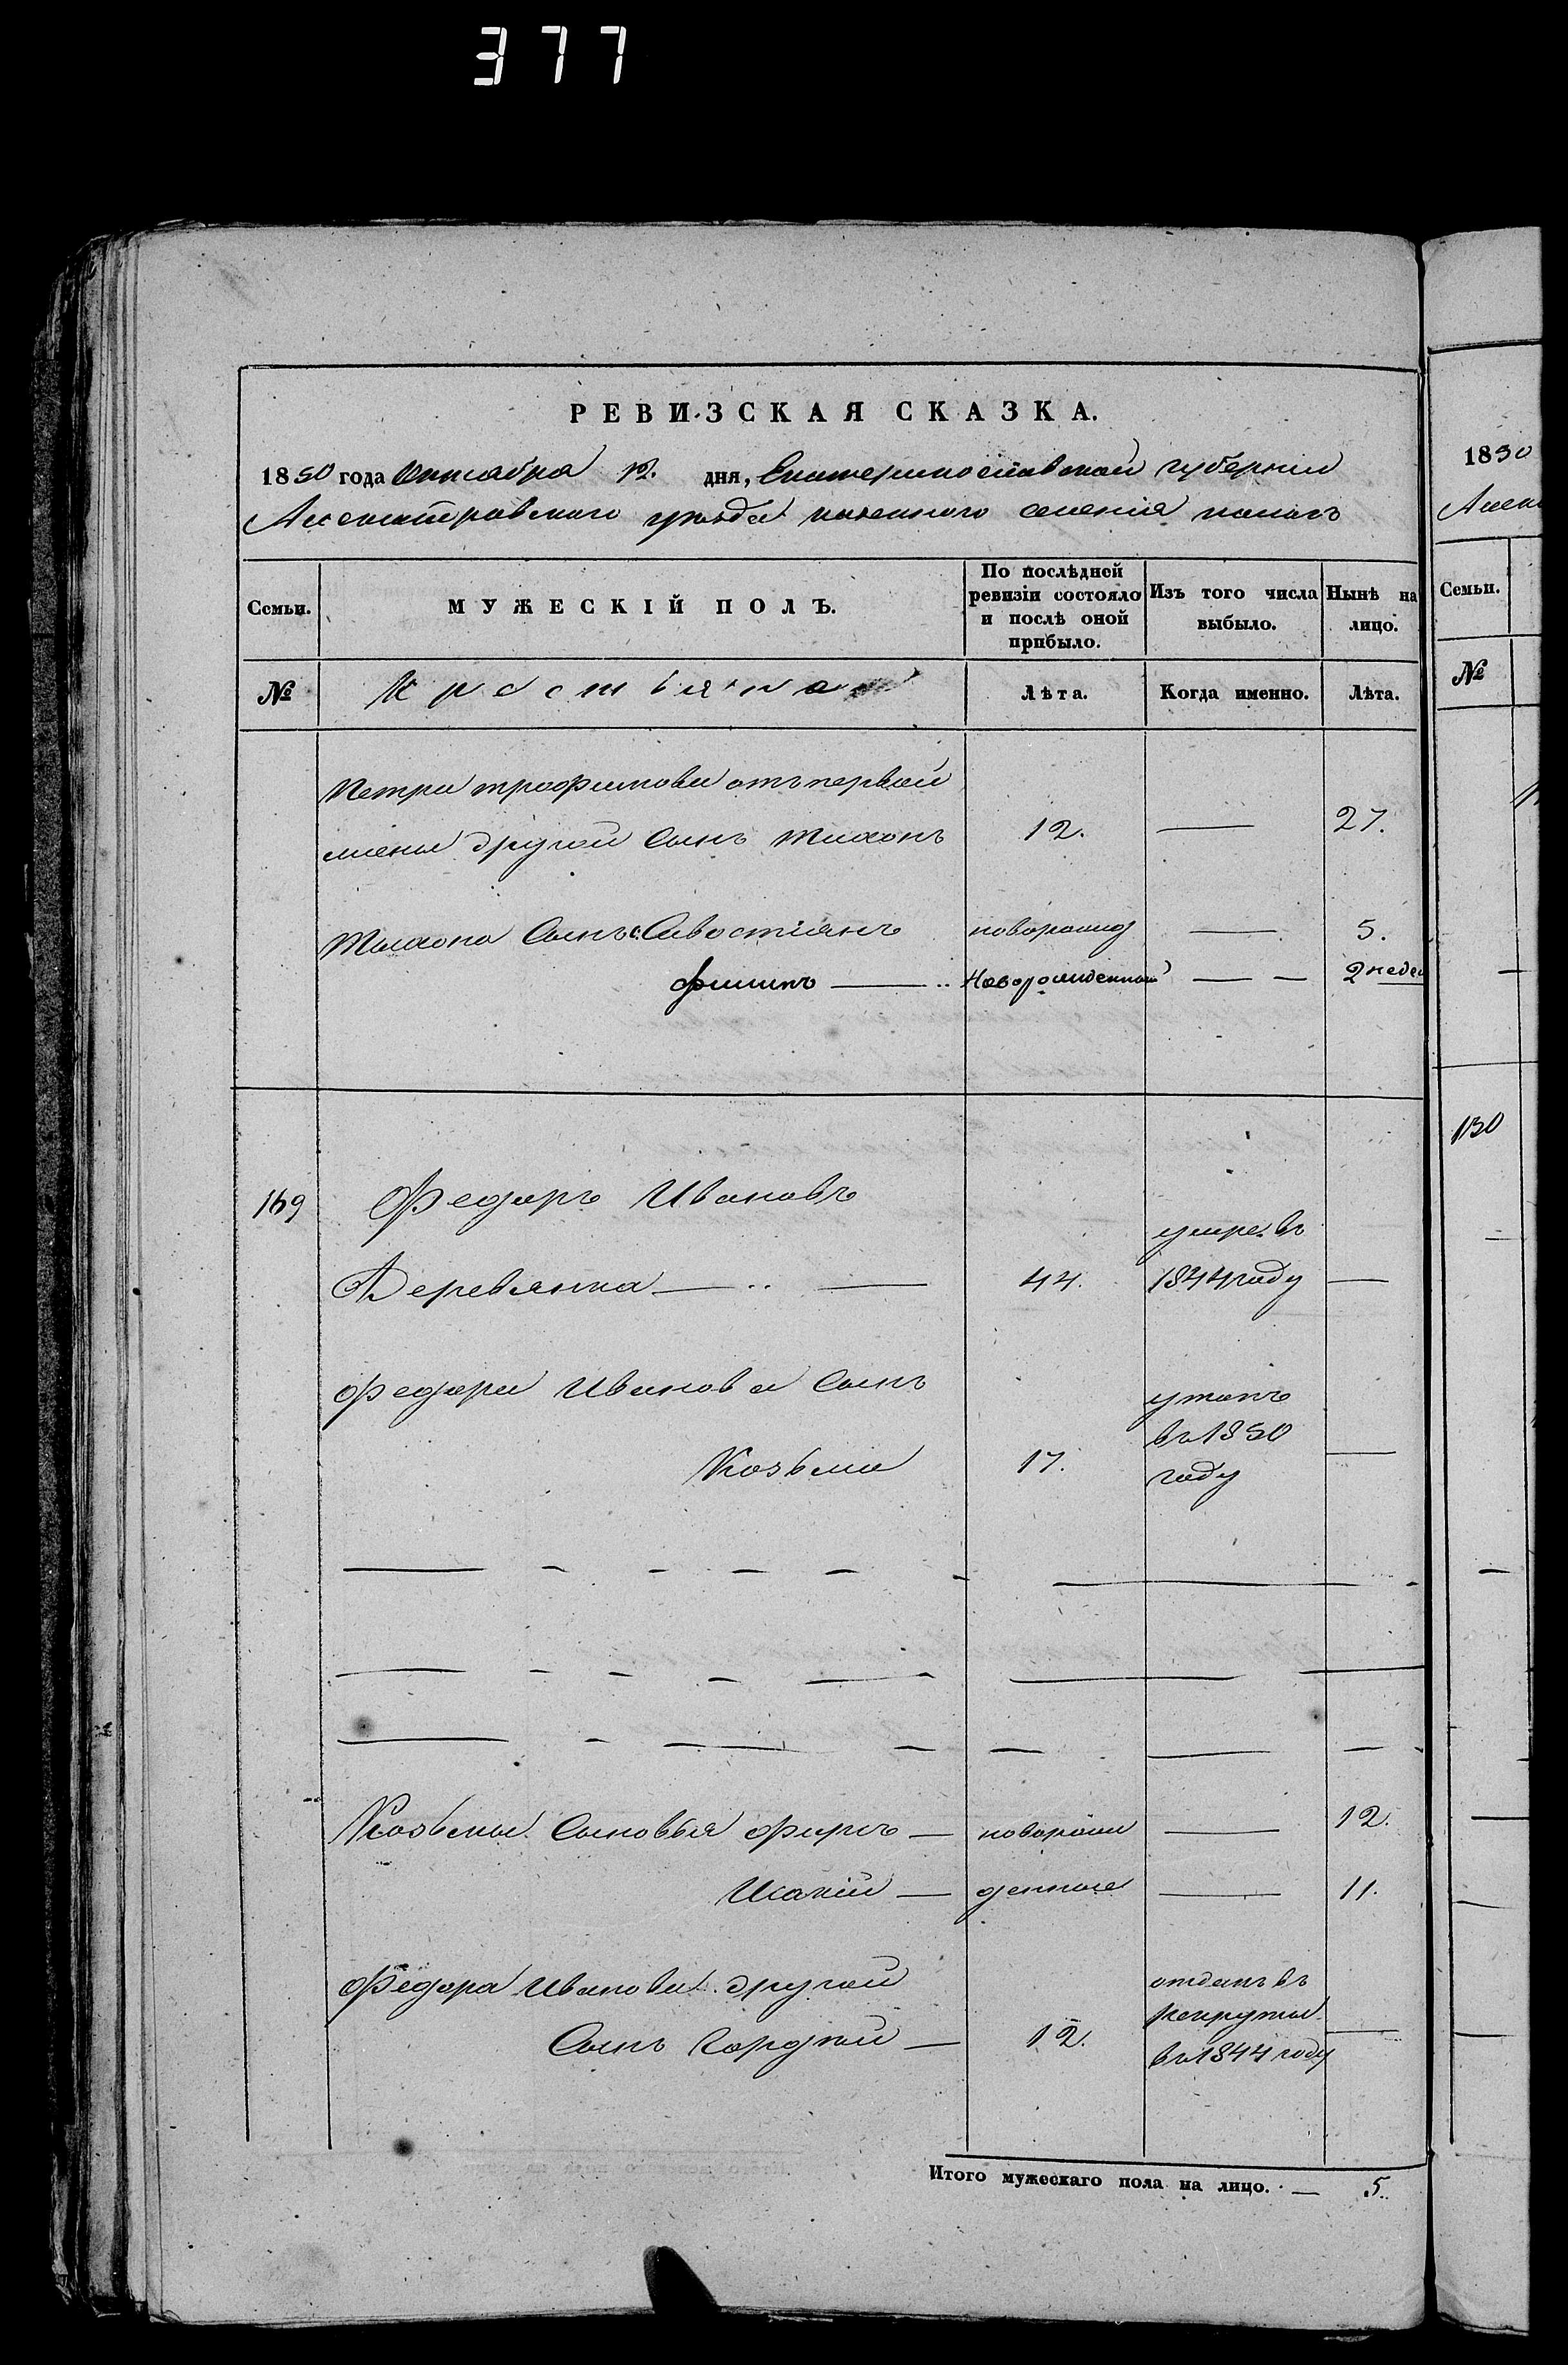 377
РЕВИЗСКАЯ СКАЗКА.
1850 года Октября 12. дня, Екатеринославской губернии
Александровского уѣзда казенного селенія
Семьи.
МУЖЕСКІЙ ПОЛЪ.
По послѣдней ревизіи состояло и послѣ оной прибыло.
Изъ того числа выбыло.
Ныне на лицо.
№
Лѣта.
Когда именно.
Лѣта.
Петра трофимова отъ первой
жены другой Сынъ Тихонъ 12. — 27.
Тихона Сынъ Савостіянъ новорожд — 5.
филипъ — Новорожденный — — 2 недел
169
Федоръ Ивановъ
Деревянка — 44. умре въ 1844 году —
федора Иванова Сынъ
Козьма 17. утопъ въ 1850 году —
Козьмы Сыновья фирсъ — новорож — 12.
Исакій — денные — 11.
Федора Иванова другой
Сынъ Гордей — 12. отданъ въ рекруты въ 1844 году —
Итого мужескаго пола на лицо. — 5.
1850
Семьи.
№
130